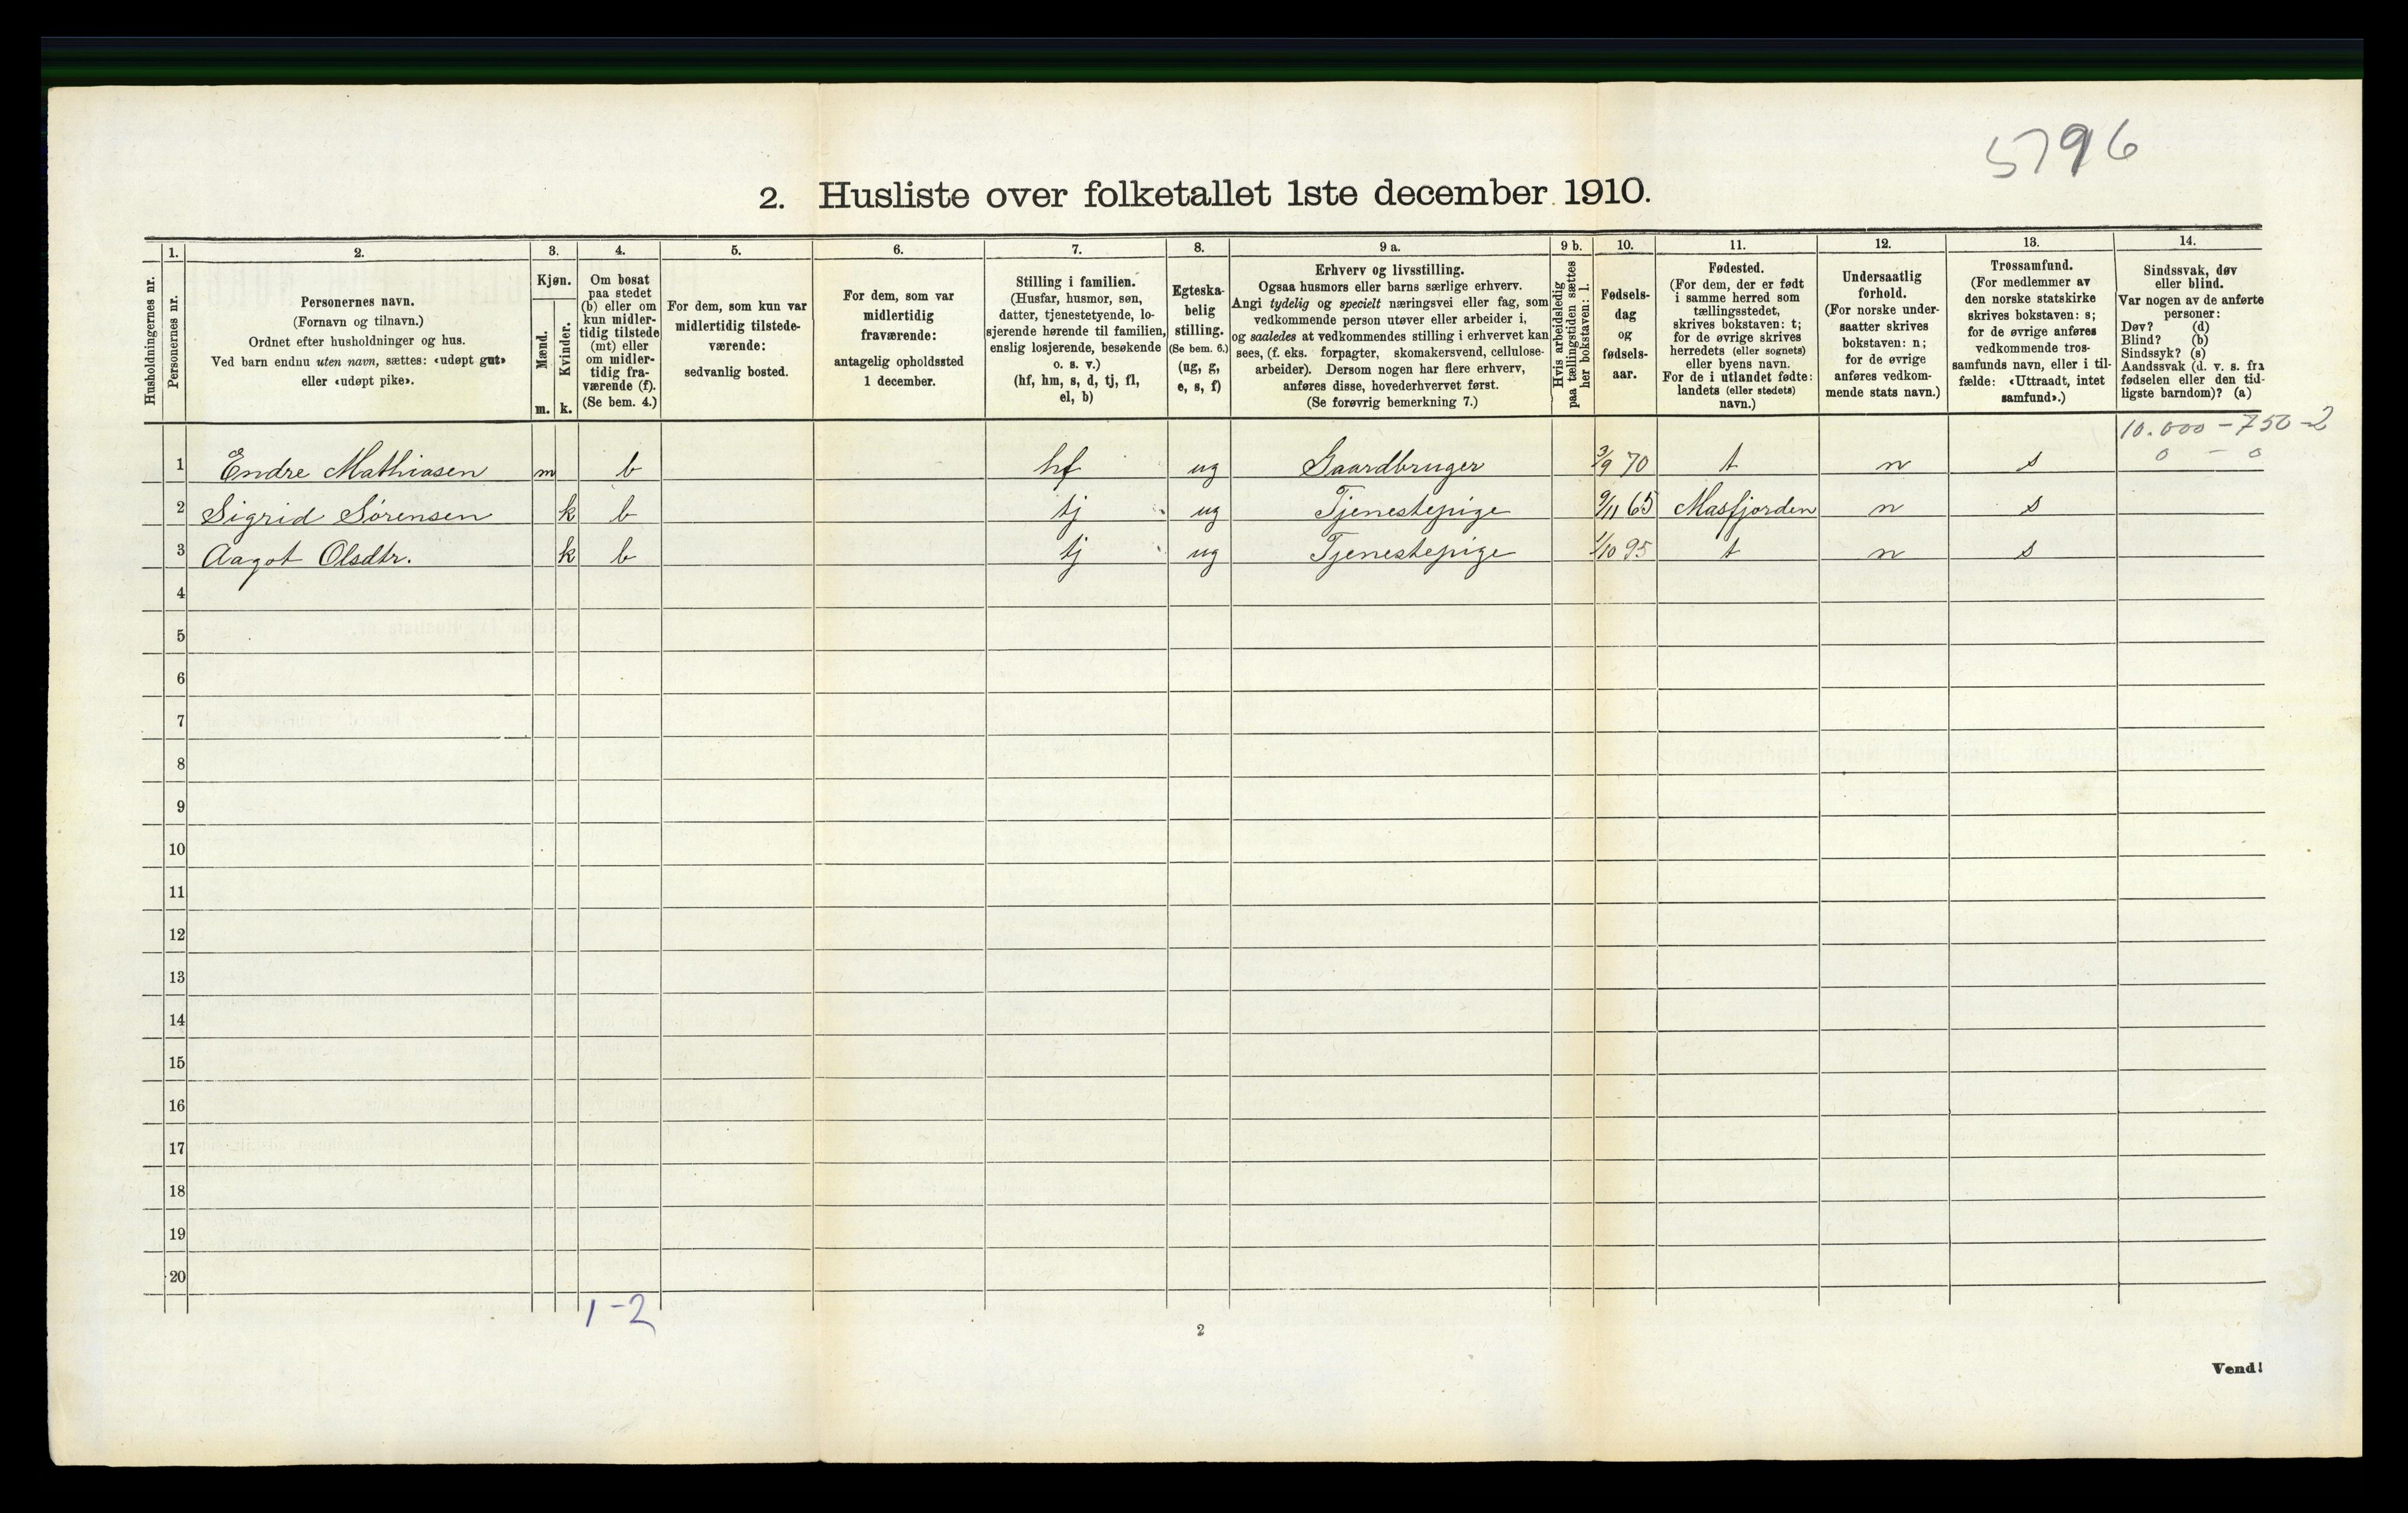 5796
2. Husliste over folketallet 1ste december 1910.
Husholdningernes nr.
1.
Personernes nr.
2.
Personernes navn.
(Fornavn og tilnavn.)
Ordnet efter husholdninger og hus.
Ved barn endnu uten navn, sættes: «udøpt gut»
eller «udøpt pike».
3.
Kjøn.
Mænd.
m.
Kvinder.
k.
4.
Om bosat
paa stedet
(b) eller om
kun midler-
tidig tilstede
(mt) eller
om midler-
tidig fra-
værende (f).
(Se bem. 4.)
5.
For dem, som kun var
midlertidig tilstede-
værende:
sedvanlig bosted.
6.
For dem, som var
midlertidig
fraværende:
antagelig opholdssted
1 december.
7.
Stilling i familien.
(Husfar, husmor, søn,
datter, tjenestetyende, lo-
sjerende hørende til familien,
enslig losjerende, besøkende
o. s. v.)
(hf, hm, s, d, tj, fl,
el, b)
8.
Egteska-
belig
stilling.
(Se bem. 6.)
(ug, g,
e, s, f)
9 a.
Erhverv og livsstilling.
Ogsaa husmors eller barns særlige erhverv.
Angi tydelig og specielt næringsvei eller fag, som
vedkommende person utøver eller arbeider i,
og saaledes at vedkommendes stilling i erhvervet kan
sees, (f. eks. forpagter, skomakersvend, cellulose-
arbeider). Dersom nogen har flere erhverv,
anføres disse, hovederhvervet først.
(Se forøvrig bemerkning 7.)
9 b.
Hvis arbeidsledig
paa tællingstiden sættes
her bokstaven: l.
10.
Fødsels-
dag
og
fødsels-
aar.
11.
Fødested.
(For dem, der er født
i samme herred som
tællingsstedet,
skrives bokstaven: t;
for de øvrige skrives
herredets (eller sognets)
eller byens navn.
For de i utlandet fødte:
landets (eller stedets)
navn.)
12.
Undersaatlig
forhold.
(For norske under-
saatter skrives
bokstaven: n;
for de øvrige
anføres vedkom-
mende stats navn.)
13.
Trossamfund.
(For medlemmer av
den norske statskirke
skrives bokstaven: s;
for de øvrige anføres
vedkommende tros-
samfunds navn, eller i til-
fælde: «Uttraadt, intet
samfund».)
14.
Sindssvak, døv
eller blind.
Var nogen av de anførte
personer:
Døv? (d)
Blind? (b)
Sindssyk? (s)
Aandssvak (d. v. s. fra
fødselen eller den tid-
ligste barndom)? (a)
10.000 - 750 - 2
0 - 0
1 Endre Mathiasen m b hf ug Gaardbruger 3/9 70 t n s
2 Sigrid Sörensen k b tj ug Tjenestepige 9/11 65 Masfjorden n s
3 Aagot Olsdtr. k b tj ug Tjenestepige 1/10 95 t n s
4
5
6
7
8
9
10
11
12
13
14
15
16
17
18
19
20
1-2
2
Vend!